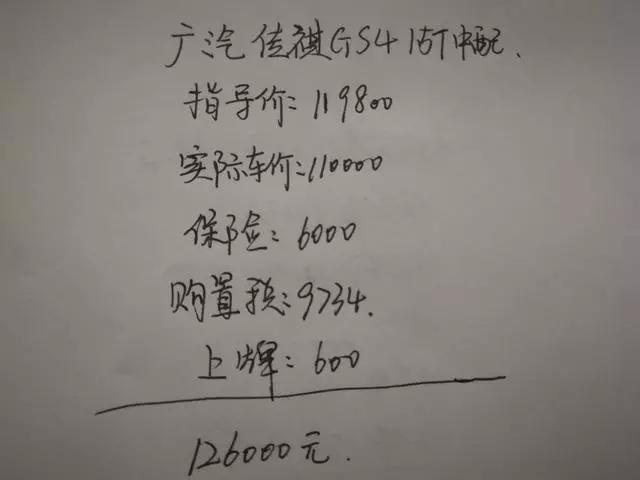 广汽传祺GS4 15T中配.
指导价: 119800
实际车价: 110000
保险: 6000
购置税: 9734.
上牌: 600
126000元.